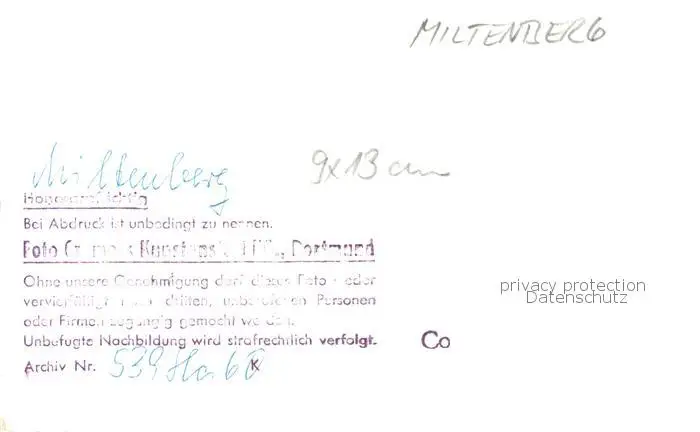 MILTENBERG
Miltenberg 9x13 cm
Honorarpflichtig
Bei Abdruck ist unbedingt zu nennen.
Foto Kunstanst. Dortmund
Ohne unsere Genehmigung darf dieses Foto weder
vervielfältigt noch dritten, unberufenen Personen
oder Firmen zugängig gemacht werden.
Unbefugte Nachbildung wird strafrechtlich verfolgt.
Co
Archiv Nr. 539 K
privacy protection
Datenschutz